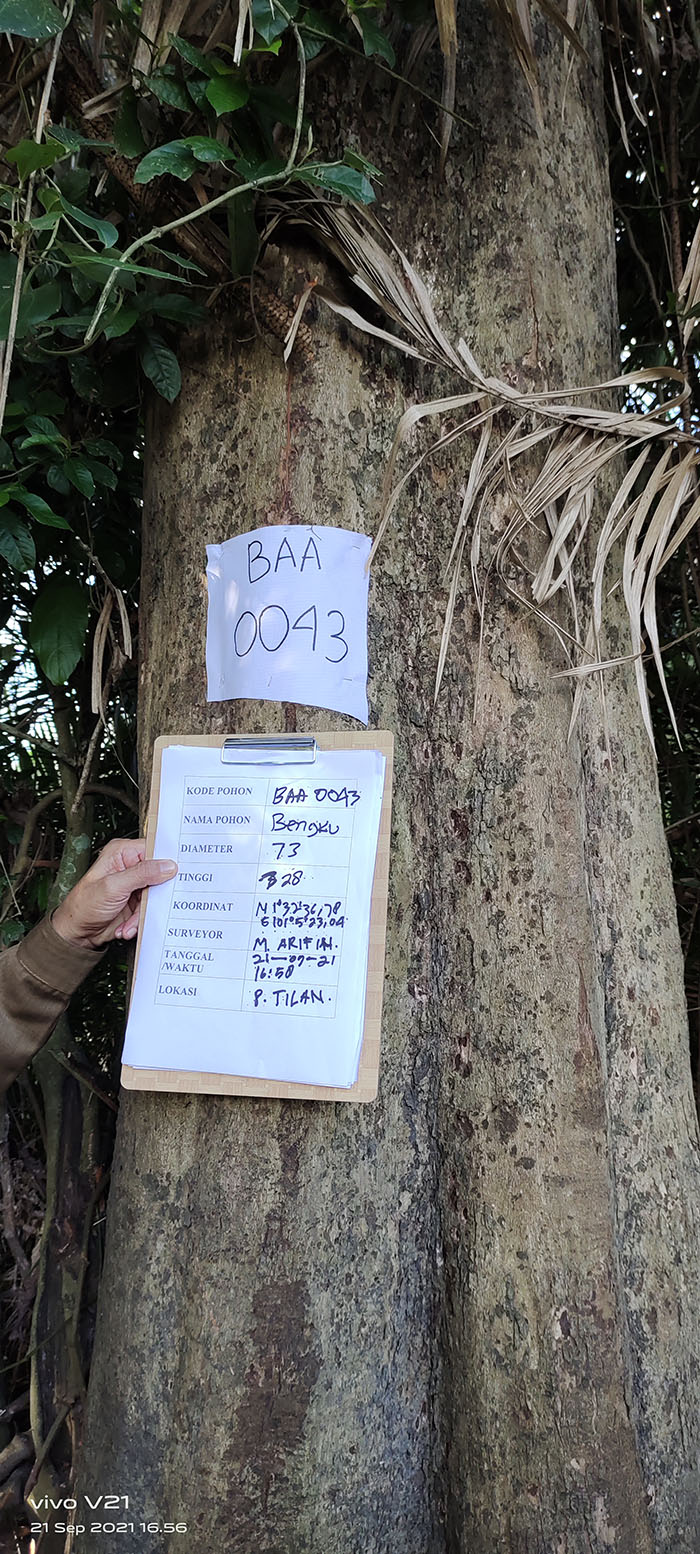 BAA
0043
KODE POHON BAA 0043
NAMA POHON Bengku
DIAMETER 73
TINGGI 28
KOORDINAT N 1°32'36,78
E101°5'23,04
SURVEYOR M. ARIFIN.
TANGGAL 21-09-21
/WAKTU 16:58
LOKASI P. TILAN.
vivo V21
21 Sep 2021 16.56